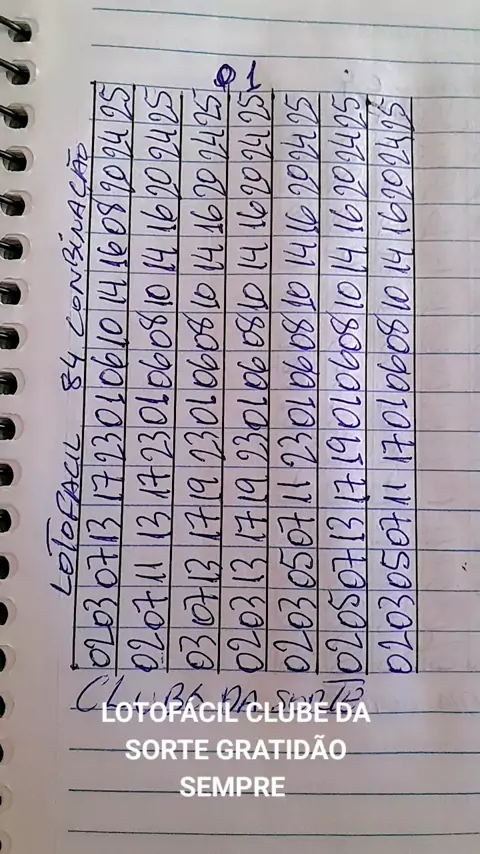 01
LOTOFACIL 84 CONBINAÇÃO
02 03 07 13 17 23 01 06 10 14 16 08 20 24 25
02 07 11 13 17 23 01 06 08 10 14 16 20 24 25
03 07 13 17 19 23 01 06 08 10 14 16 20 24 25
02 03 13 17 19 23 01 06 08 10 14 16 20 24 25
02 03 05 07 11 23 01 06 08 10 14 16 20 24 25
02 05 07 13 17 19 01 06 08 10 14 16 20 24 25
02 03 05 07 11 17 01 06 08 10 14 16 20 24 25
CLUBE DA SORTE
LOTOFÁCIL CLUBE DA
SORTE GRATIDÃO
SEMPRE